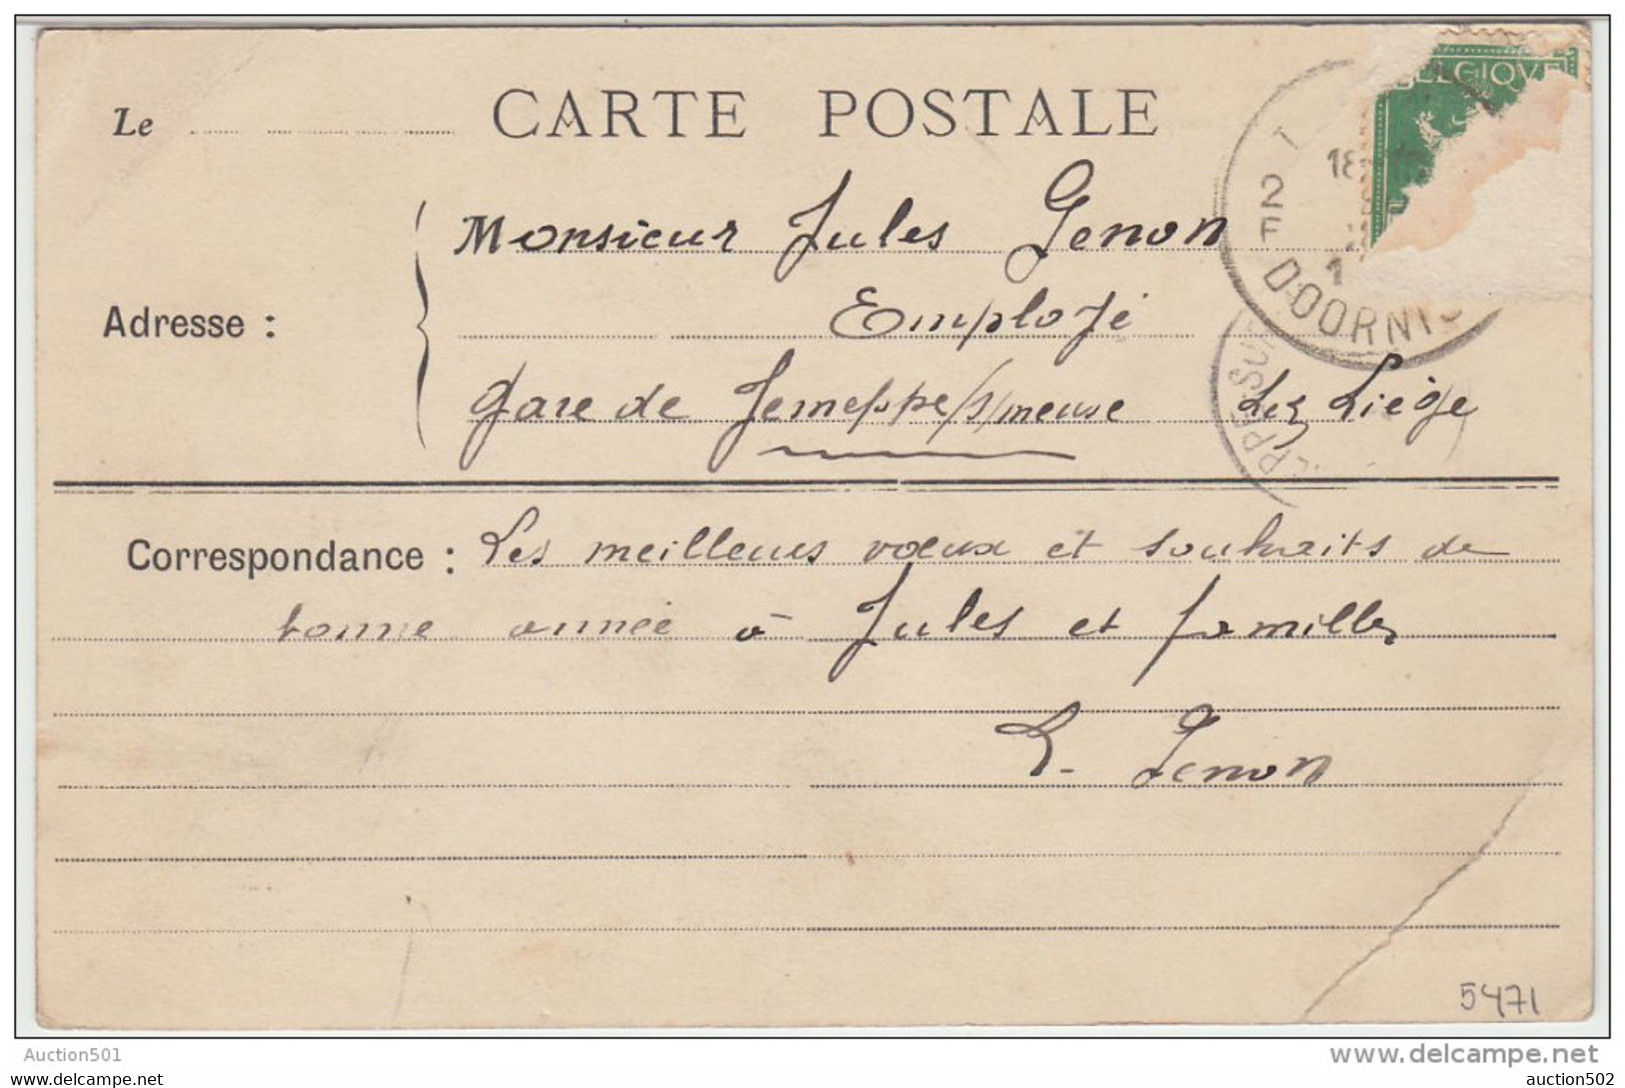 Le
CARTE POSTALE
BELGIQUE
18
2
F
1
DOORNIK
Monsieur Jules Genon
Adresse :
Employé
gare de Jemeppe/s/meuse Lez Liége
EPPE-SUR
Correspondance : Les meilleurs vœux et souhaits de
bonne année à Jules et familles
L. Genon
5471
Auction501
www.delcampe.net
auction501
auction502